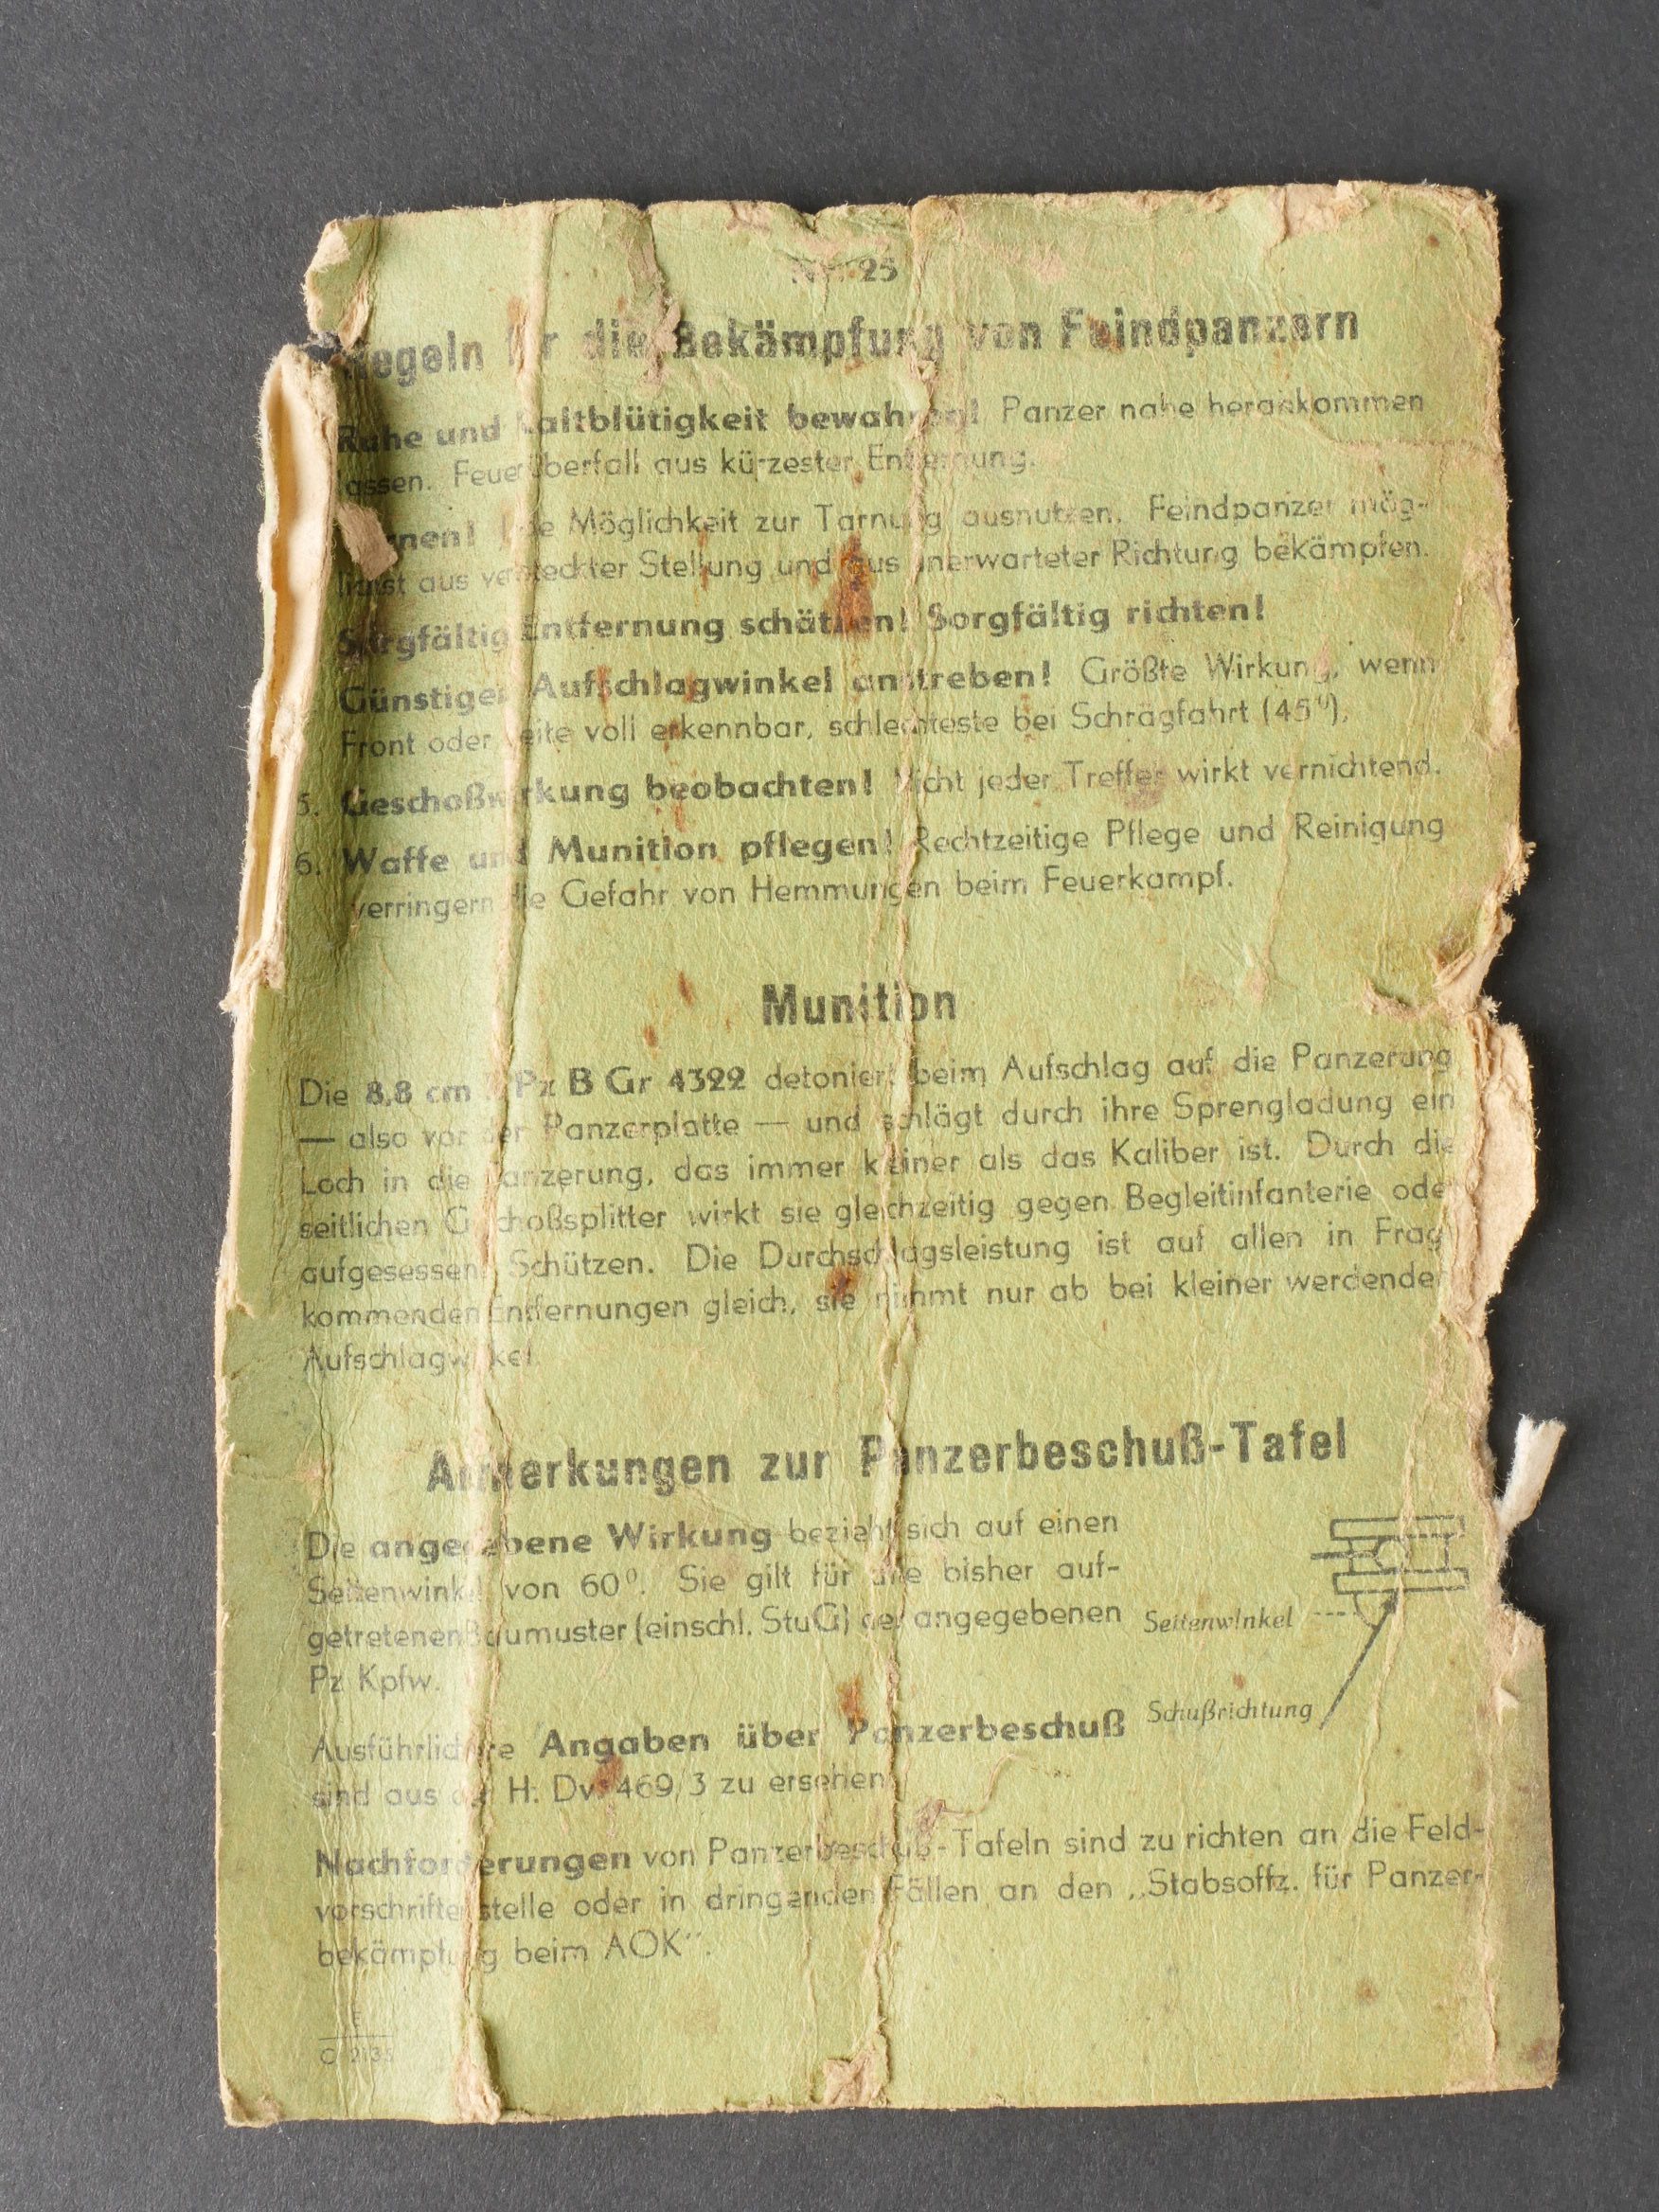 Nr. 25
Regeln für die Bekämpfung von Feindpanzern
Ruhe und Kaltblütigkeit bewahren! Panzer nahe herankommen
lassen. Feuerüberfall aus kürzester Entfernung.
Tarnen! Jede Möglichkeit zur Tarnung ausnutzen. Feindpanzer mög-
lichst aus versteckter Stellung und aus unerwarteter Richtung bekämpfen.
Sorgfältig Entfernung schätzen! Sorgfältig richten!
Günstigen Aufschlagwinkel anstreben! Größte Wirkung, wenn
Front oder Seite voll erkennbar, schlechteste bei Schrägfahrt (45°).
5. Geschoßwirkung beobachten! Nicht jeder Treffer wirkt vernichtend.
6. Waffe und Munition pflegen! Rechtzeitige Pflege und Reinigung
verringern die Gefahr von Hemmungen beim Feuerkampf.
Munition
Die 8,8 cm Pz B Gr 4322 detoniert beim Aufschlag auf die Panzerung
— also vor der Panzerplatte — und schlägt durch ihre Sprengladung ein
Loch in die Panzerung, das immer kleiner als das Kaliber ist. Durch die
seitlichen Geschoßsplitter wirkt sie gleichzeitig gegen Begleitinfanterie oder
aufgesessene Schützen. Die Durchschlagsleistung ist auf allen in Frage
kommenden Entfernungen gleich, sie nimmt nur ab bei kleiner werdendem
Aufschlagwinkel.
Anmerkungen zur Panzerbeschuß-Tafel
Die angegebene Wirkung bezieht sich auf einen
Seitenwinkel von 60°. Sie gilt für alle bisher auf-
getretenen Baumuster (einschl. StuG) der angegebenen
Pz Kpfw.
Seitenwinkel
Schußrichtung
Ausführlichere Angaben über Panzerbeschuß
sind aus der H. Dv. 469/3 zu ersehen.
Nachforderungen von Panzerbeschuß-Tafeln sind zu richten an die Feld-
vorschriftenstelle oder in dringenden Fällen an den „Stabsoffz. für Panzer-
bekämpfung beim AOK".
E
C 2135